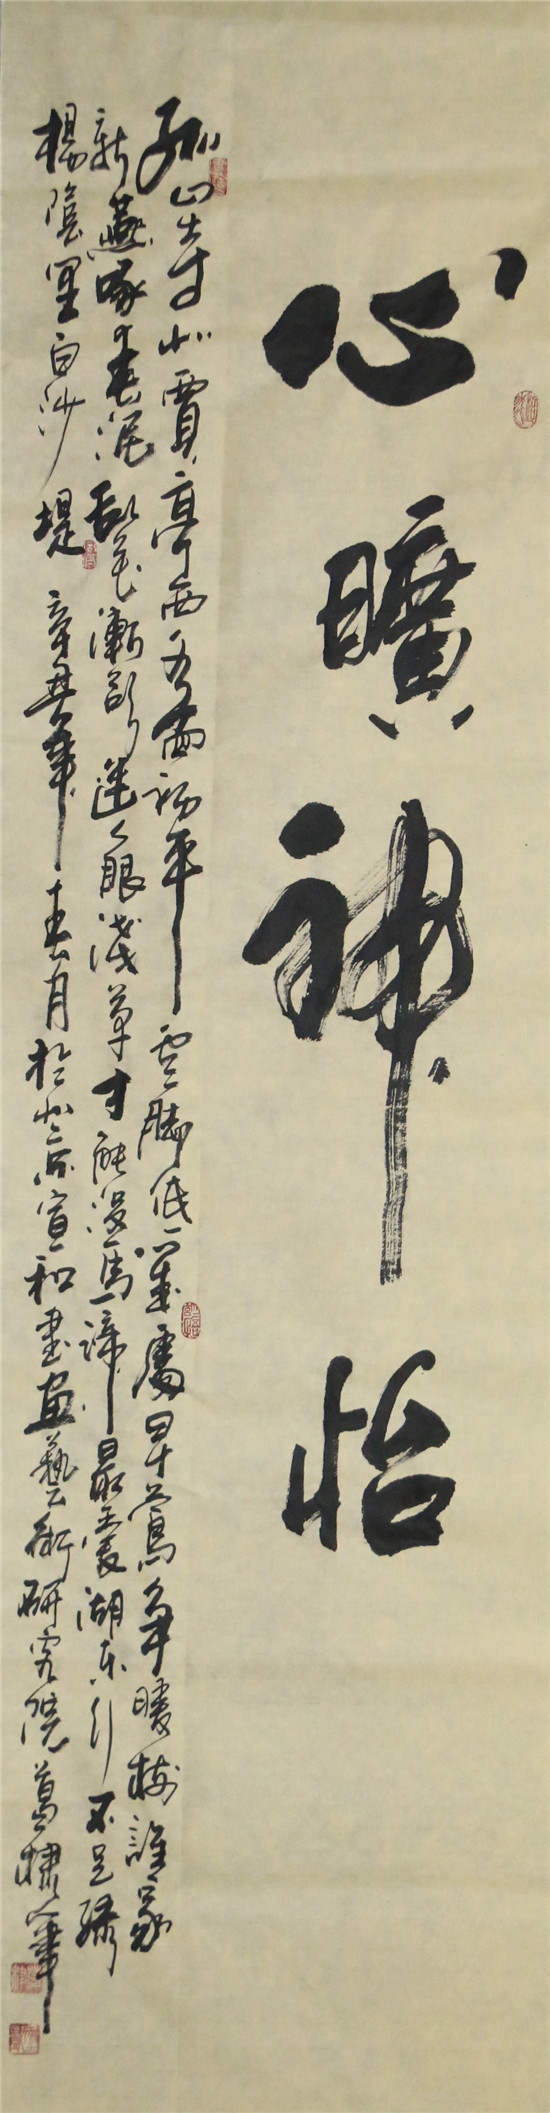 心曠神怡
孤山寺北賈亭西水面初平雲腳低幾處早鶯爭暖樹誰家
新燕啄春泥亂花漸欲迷人眼淺草才能沒馬蹄最愛湖東行不足綠
楊陰里白沙堤 辛丑年春月於北京宣和書畫藝術研究院葛